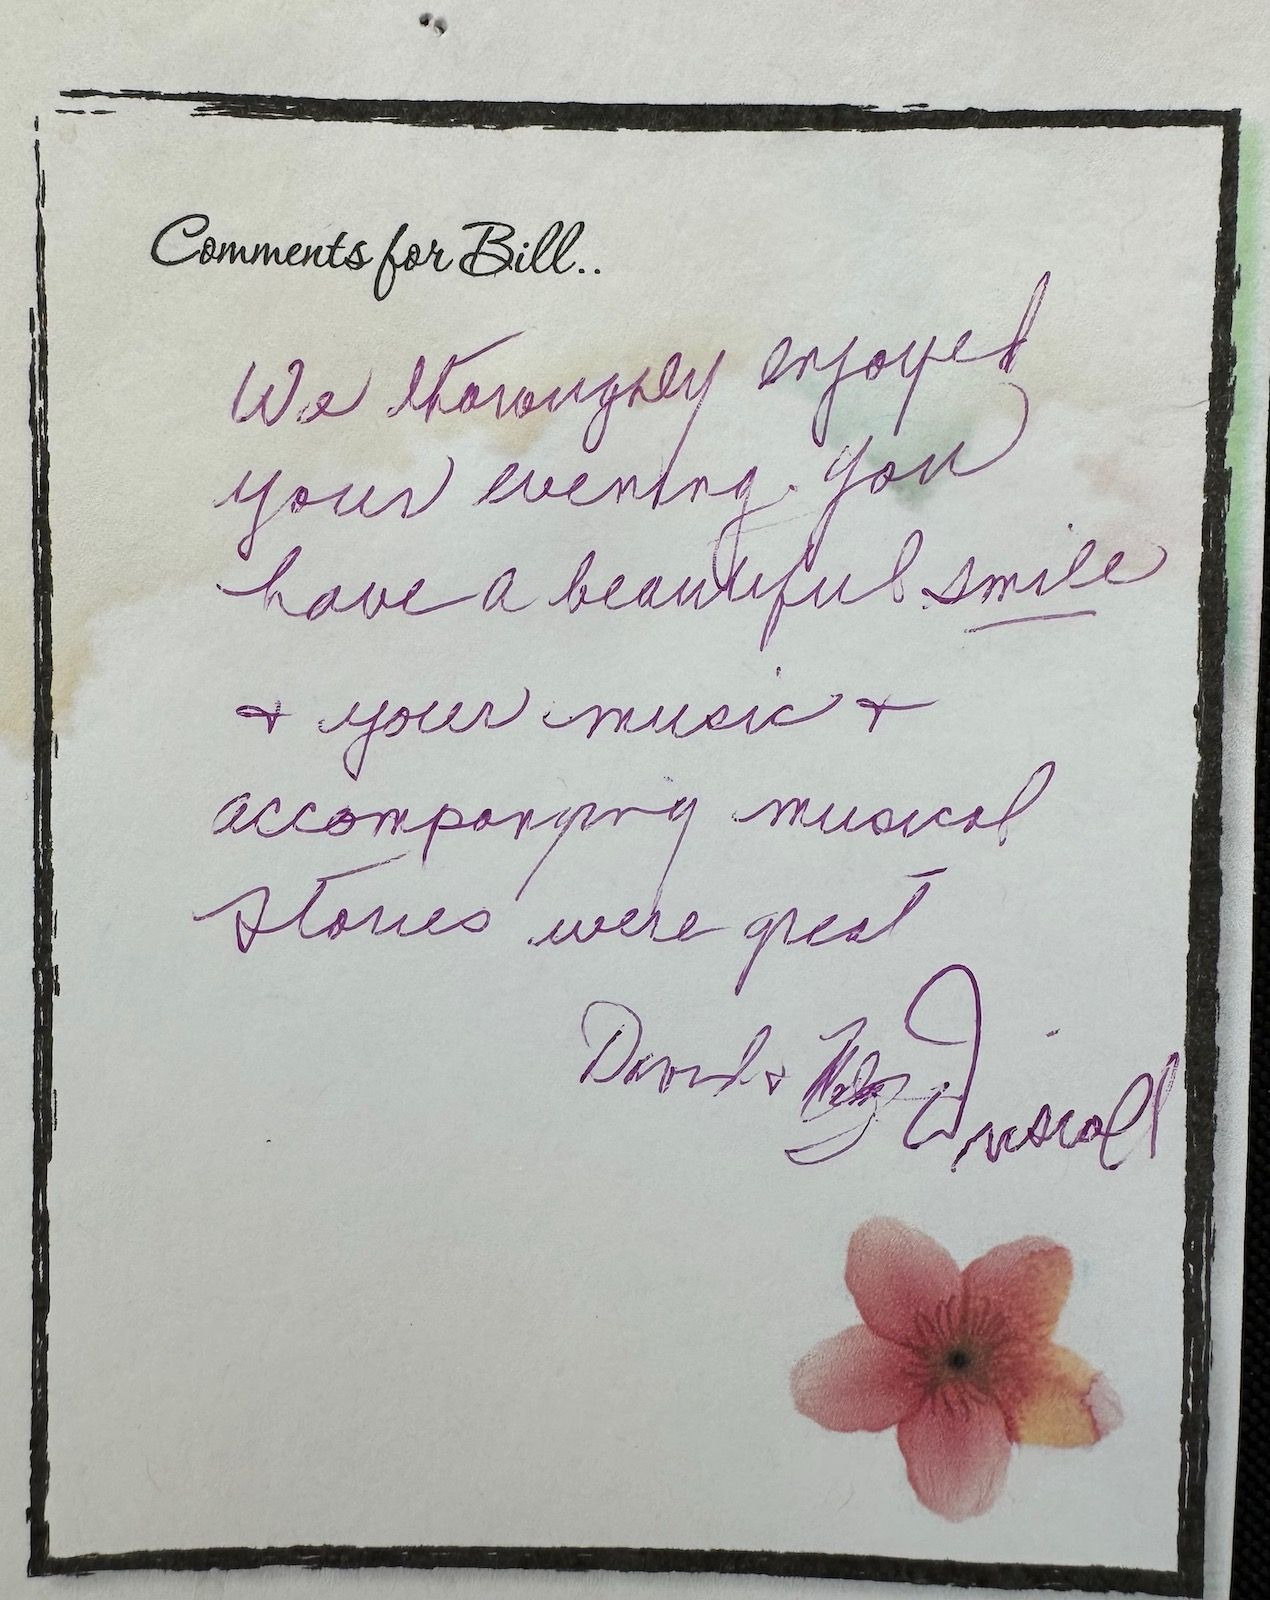 Comments for Bill..
We thoroughly enjoyed
your evening. You
have a beautiful smile
+ your music +
accompanying musical
stories were great
David + Driscoll